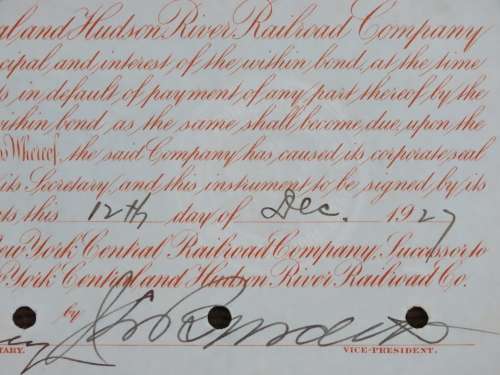 al and Hudson River Railroad Company
cipal and interest of the within bond, at the time
s in default of payment of any part thereof by the
within bond, as the same shall become due, upon the
s Whereof, the said Company has caused its corporate seal
its Secretary, and this instrument to be signed by its
ts this 12th day of Dec. 1927
New York Central Railroad Company, Successor to
York Central and Hudson River Railroad Co.
by
TARY. VICE-PRESIDENT.